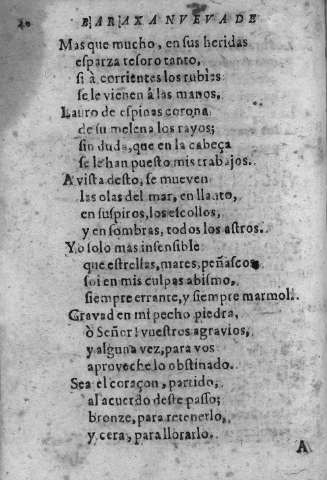 20 BARAXA NVEVA DE
Mas que mucho, en sus heridas
esparza tesoro tanto,
si à corrientes los rubies
se le vienen á las manos.
Lauro de espinas corona
de su melena los rayos;
sin duda, que en la cabeça
se le han puesto mis trabajos.
A vista desto, se mueven
las olas del mar, en llanto,
en suspiros, los escollos,
y en sombras, todos los astros.
Yo solo mas insensible
que estrellas, mares, peñascos
soi en mis culpas abismo,
siempre errante, y siempre marmol.
Gravad en mi pecho piedra,
ò Señor! vuestros agravios,
y alguna vez, para vos
aproveche lo obstinado.
Sea el coraçon, partido,
al acuerdo deste passo;
bronze, para retenerlo,
y cera, para llorarlo.
A